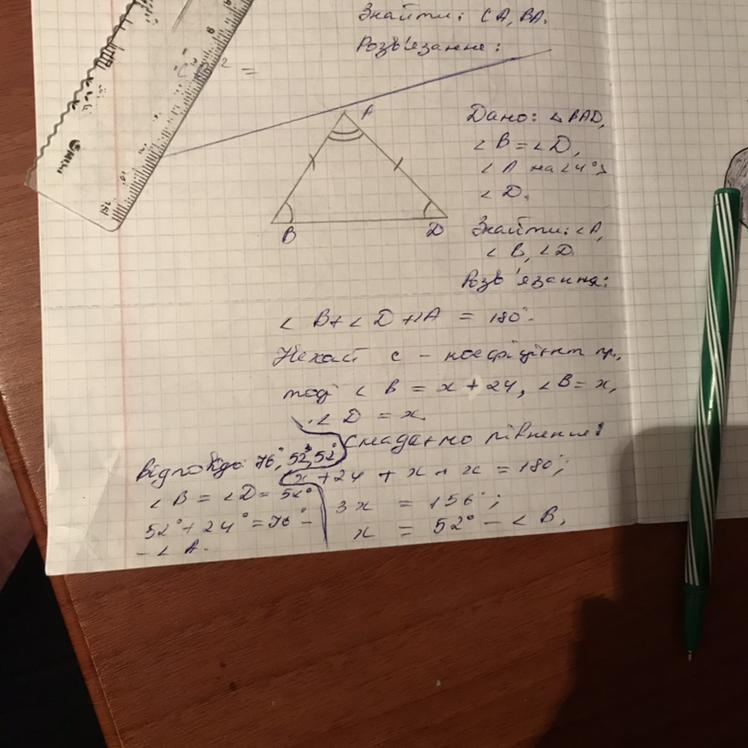 Знайти: CA, BA.
Розв'язання:
2 =
A
B
D
Дано: ΔBAD,
∠B = ∠D,
∠A на 24° >
∠D.
Знайти: ∠A,
∠B, ∠D.
Розв'язання:
∠B + ∠D + ∠A = 180°.
Нехай с - коефіцієнт пр,
тоді ∠B = x + 24, ∠B = x,
∠D = x.
Складаємо рівнення:
x + 24 + x + x = 180°;
3x = 156°;
x = 52° - ∠B,
Відповідь: 76°, 52°, 52°
∠B = ∠D = 52°
52° + 24° = 76° -
- ∠A.